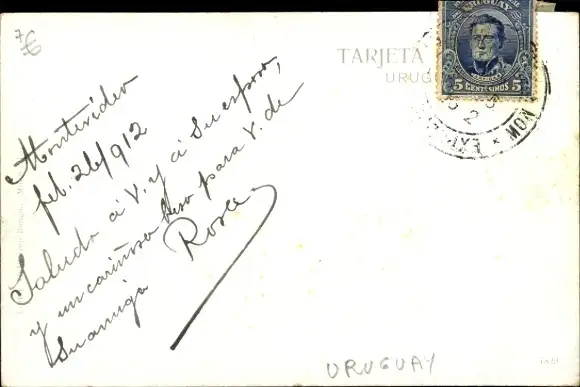 7€
TARJETA
URUG
URUGUAY
5 CENTÉSIMOS 5
MON
EXT
Montevideo
feb. 26/912
Saludo á V. y á Su esposo,
y un cariñoso beso para V. de
Su amiga Rosa
URUGUAY